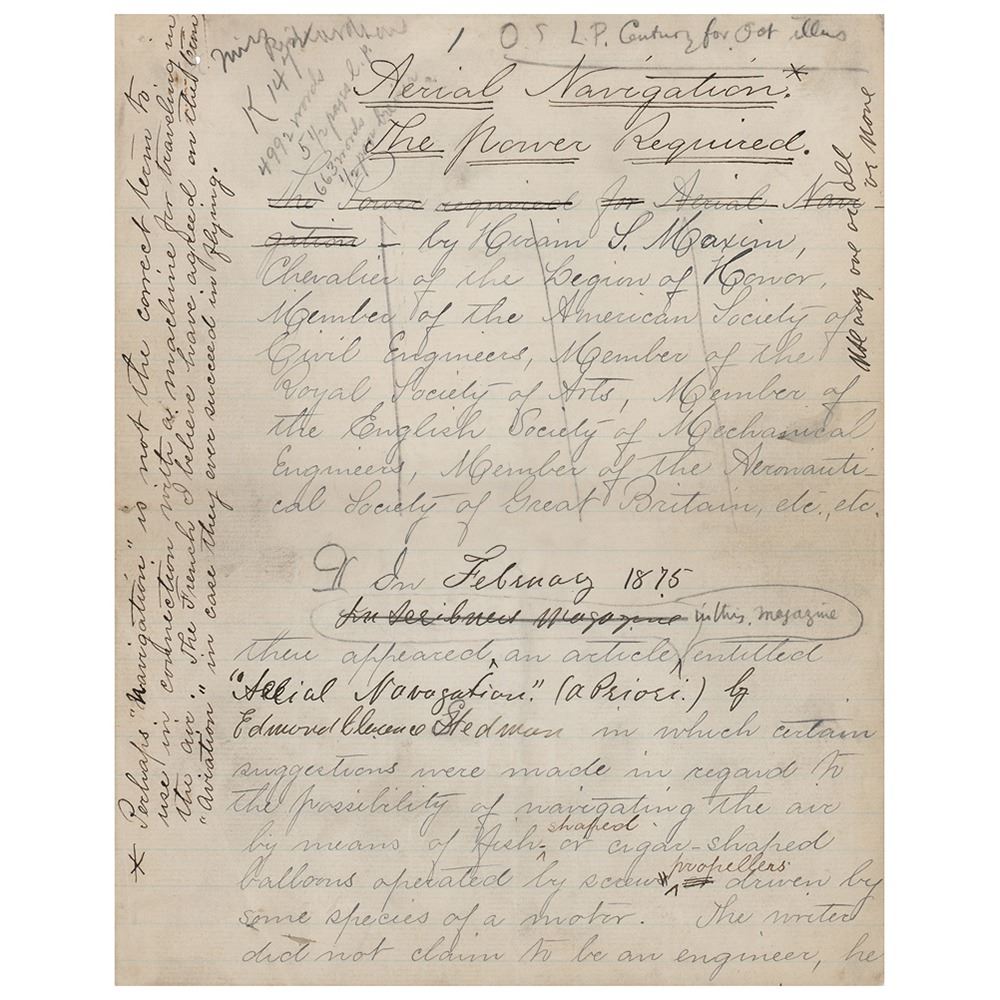 1 O S L.P. Century for Oct illus
Miss
K 147
4992 words
5 1/2 pages L.P.
663 words
Aerial Navigation.*
The Power Required.
The Power required for Aerial Navi-
gation - by Hiram S. Maxim,
Chevalier of the Legion of Honor,
Member of the American Society of
Civil Engineers, Member of the
Royal Society of Arts, Member of
the English Society of Mechanical
Engineers, Member of the Aeronauti-
cal Society of Great Britain, etc., etc.
In February 1875
In Scribners Magazine in this magazine
there appeared an article entitled
"Aerial Navagation." (a Priori.) by
Edmond Clarence Stedman in which certain
suggestions were made in regard to
the possibility of navigating the air
by means of fish-shaped or cigar-shaped
balloons operated by screw propellers driven by
some species of a motor. The writer
did not claim to be an engineer, he
* Perhaps "Navigation" is not the correct term to
use in connection with a machine for traveling in
the air. The French I believe have agreed on this term
"Aviation" in case they ever succeed in flying.
any one or all
or none